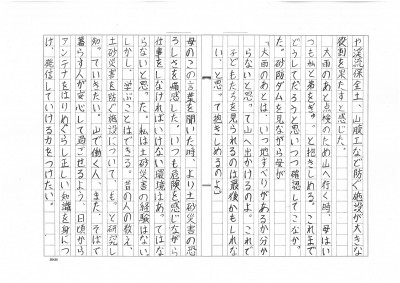 や渓流保全工、山腹工などで防ぐ施設が大きな
役割を果たすと感じた。
　大雨のあと点検のため山へ行く時、母はい
つも私と弟をぎゅっと抱きしめる。これまで
どうしてだろうと思いつつ確認してこなかっ
た。砂防ダムを見ながら母が
「大雨のあとは、いつ地すべりがあるか分か
らないと思って山へ出かけるのよ。これで
子どもたちを見られるのは最後かもしれな
い、と思って抱きしめるのよ」
母のこの言葉を聞いた時、より土砂災害の恐
ろしさを痛感した。いつも危険を感じながら
仕事をしなければいけない環境はあってはな
らないと思った。私は土砂災害の経験はない。
しかし、学ぶことはできる。昔の人の教え、
土砂災害を防ぐ施設についても、もっと研究し
知っていきたい。山で働く人、また、そばで
暮らす人が安心して過ごせるよう、日頃から
アンテナをはりめぐらし正しい知識を身につ
け、発信していける力をつけたい。